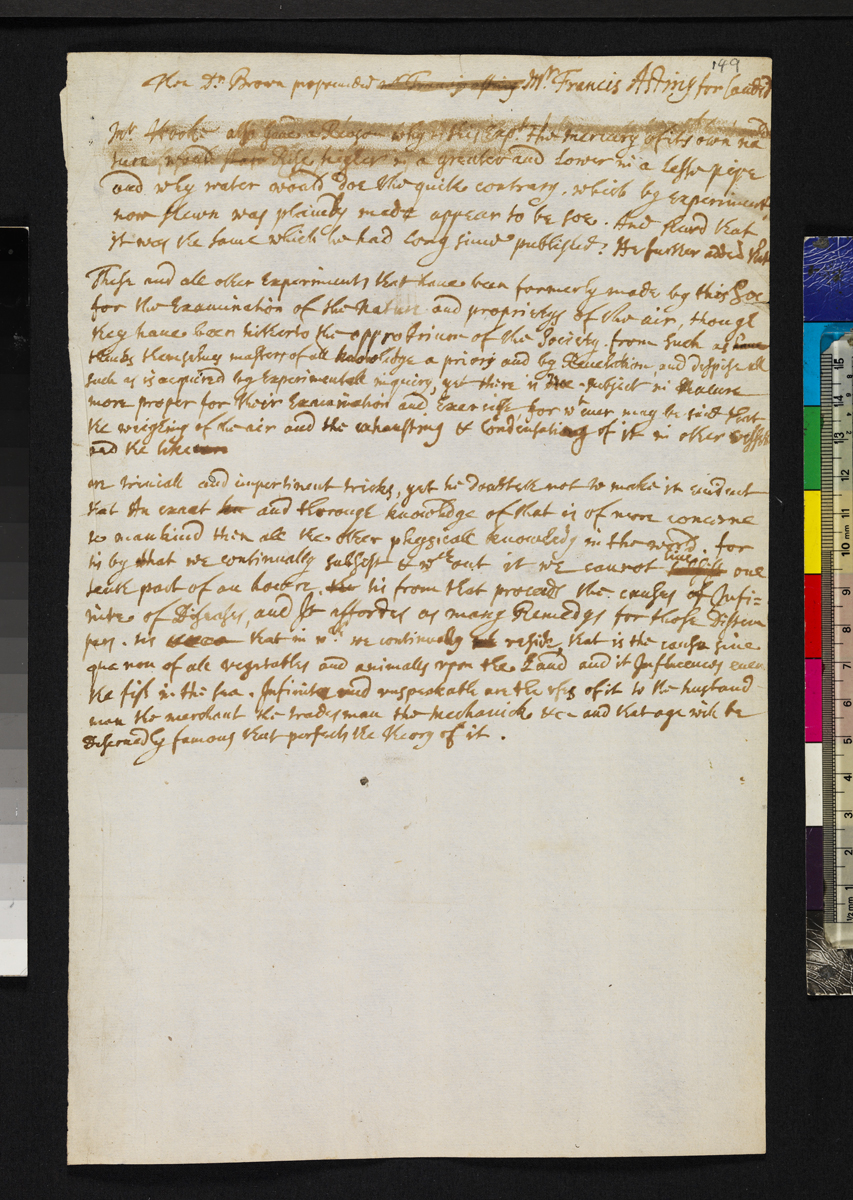 149
Hon Dr. Brown propounded Mr Francis Aston for Candid
Mr Hooke also gave a Reason why in this Expt the mercury of its own na
ture would Rise higher in a greater and Lower in a lesse pipe
and why water would doe the quite contrary. which by Experiment
now shewn was plainely made appear to be soe. And shewd that
it was the same which he had long since published: He further added that
These and all other Experiments that have been formerly made by this Soc
for the Examination of the Nature and propriertys of the air, though
they have been hitherto the opprobrium of the Society. from such as
thinks themselves masters of all knowledge a priori and by Revelation, and despise all
such as is acquired by Experimentall inquiry, yet there is noe subject in Nature
more proper for their Examination and Exercise for wt ever may be said that
the weighing of the air and the exhausting & Condensating of it in other vessells
and the like
are triviall and impertinent tricks, yet he doubted not to make it evident
that An exact and thorough knowledge of that is of more concerne
to mankind then all the other physicall knowledg in the world. for
tis by that we continually subsist & wthout it we cannot live one
tenth part of an howre. tis from that proceeds the causes of Infi=
nite of Diseases, and It affordes as many Remedys for those Distem
pers. tis that in wch we continually reside, that is the causa sine
qua non of all vegetables and animalls upon the Land and it Influences even
the fish in the sea. Infinite and unspeakable are the uses of it to the husband
man the merchant the tradesman the mechanick &c and that age will be
Deservedly famous that perfects the theory of it.